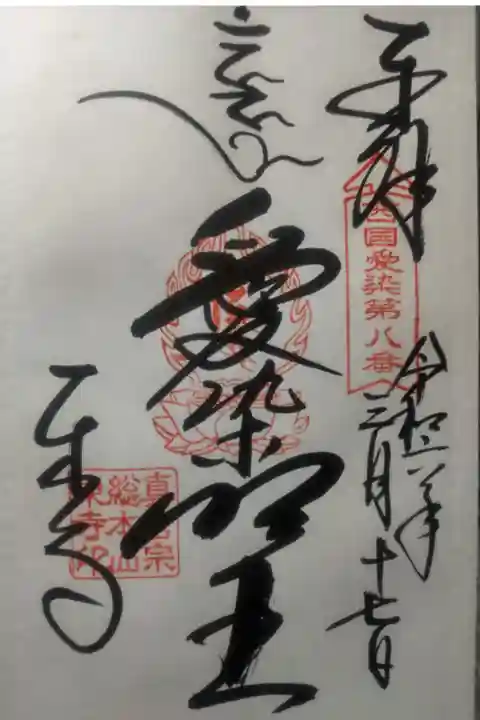 奉拝
西国愛染第八番
令和二年
三月十七日
愛染明王
東寺
真言宗
総本山
東寺印